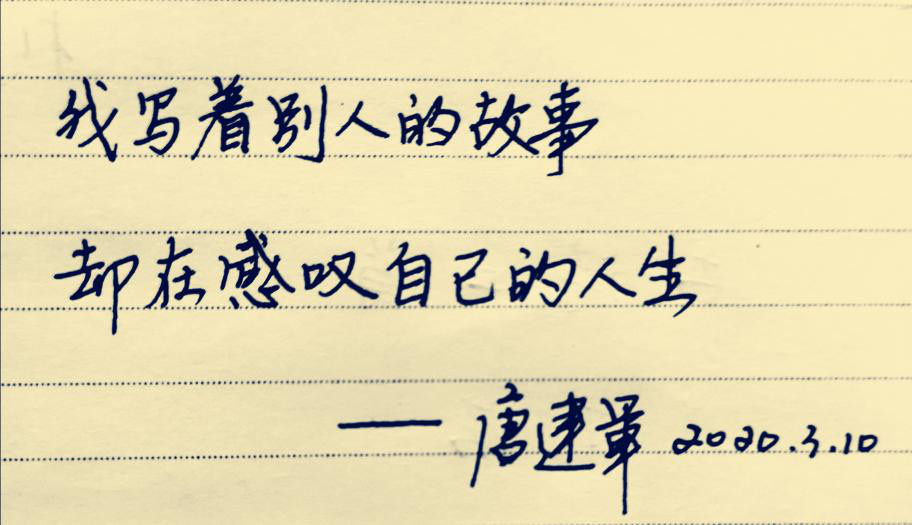 我写着别人的故事
却在感叹自己的人生
—— 唐建军 2020.3.10